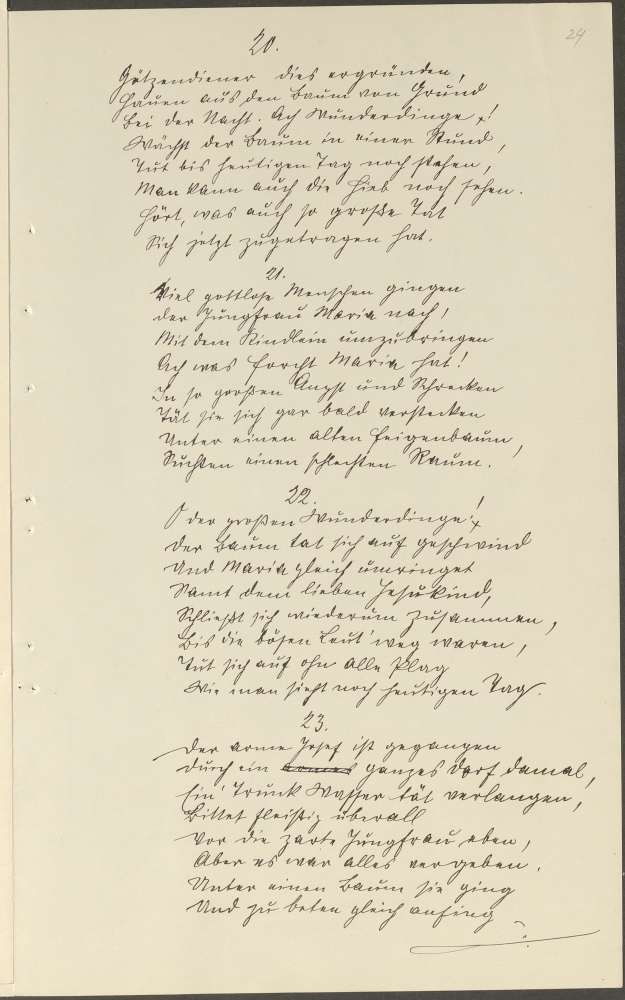 24
20.
Götzendiener dies ergründen,
Hauen aus den Baum von Grund
Bei der Nacht. Ach Wunderdinge!
Wächst der Baum in einer Stund,
Tut bis heutigen Tag noch stehen,
Man kann auch die Hieb noch sehen.
Hört, was auch so große Tat
Sich jetzt zugetragen hat.
21.
Viel gottlose Menschen gingen
der Jungfrau Maria nach,
Mit dem Kindlein umzubringen
Ach was Forcht Maria hat!
In so großen Angst und Schrecken
Tät sie sich gar bald verstecken
Unter einen alten Feigenbaum,
Suchten einen schlechten Raum.
22.
O der großen Wunderdinge!
der Baum tat sich auf geschwind
Und Maria gleich umringet
Samt dem lieben Jesukind,
Schließt sich wiederum zusammen,
Bis die bösen Leut' weg waren,
Tut sich auf ohn alle Plag
Wie man sieht noch heutigen Tag.
23.
Der arme Josef ist gegangen
Durch ein ganzes Dorf damal,
Ein Trunk Wasser tät verlangen,
Bittet fleißig überall
Vor die zarte Jungfrau eben,
Aber es war alles vergeben.
Unter einen Baum sie ging
Und zu beten gleich anfing